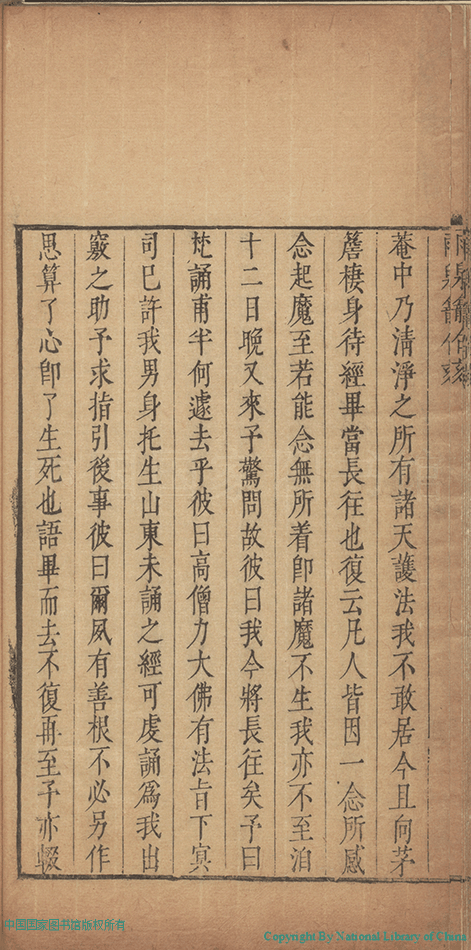 菴中乃清淨之所有諸天護法我不敢居今且向茅
簷棲身待經畢當長往也復云凡人皆因一念所感
念起魔至若能念無所着卽諸魔不生我亦不至洎
十二日晚又來予驚問故彼曰我今將長往矣予曰
梵誦甫半何遽去乎彼曰高僧力大佛有法旨下冥
司已許我男身托生山東未誦之經可虔誦爲我出
竅之助予求指引後事彼曰爾夙有善根不必另作
思算了心卽了生死也語畢而去不復再至予亦輟
中国国家图书馆版权所有
Copyright By National Library of China